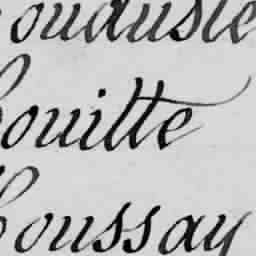 ouduste
ouitte
oussay